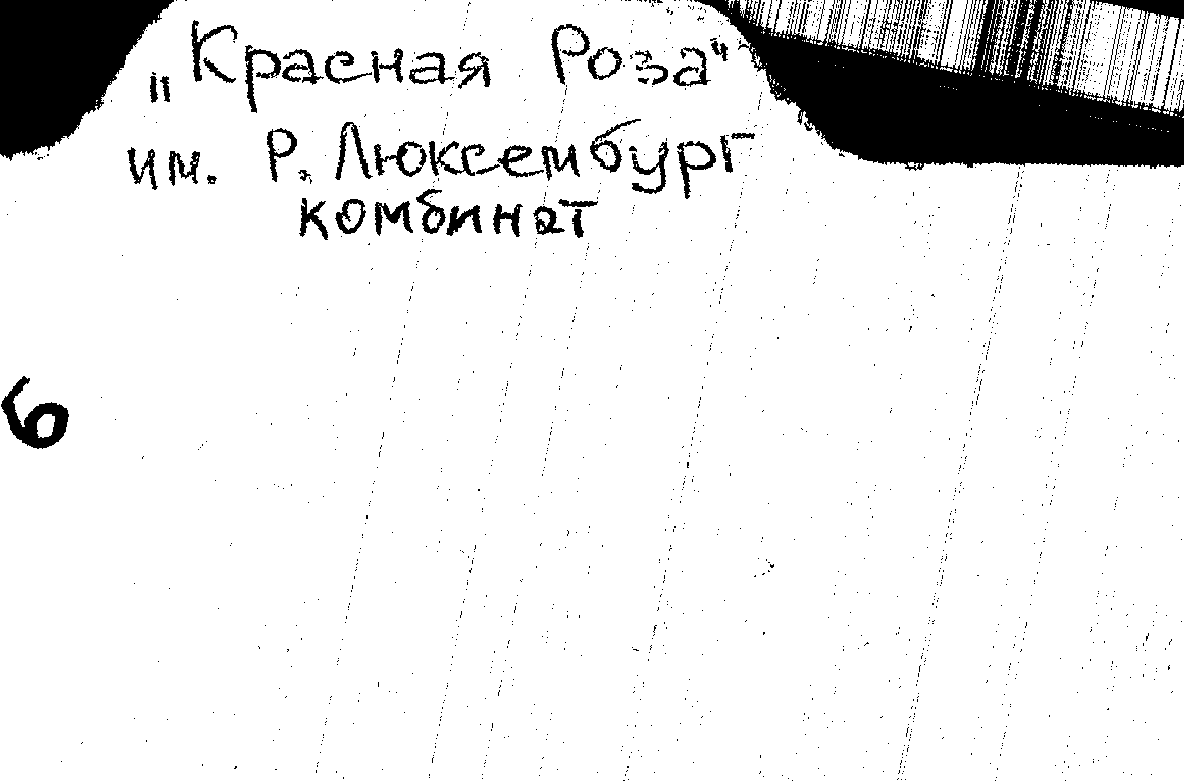 „Красная Роза"
им. Р. Люксембург
комбинат
6